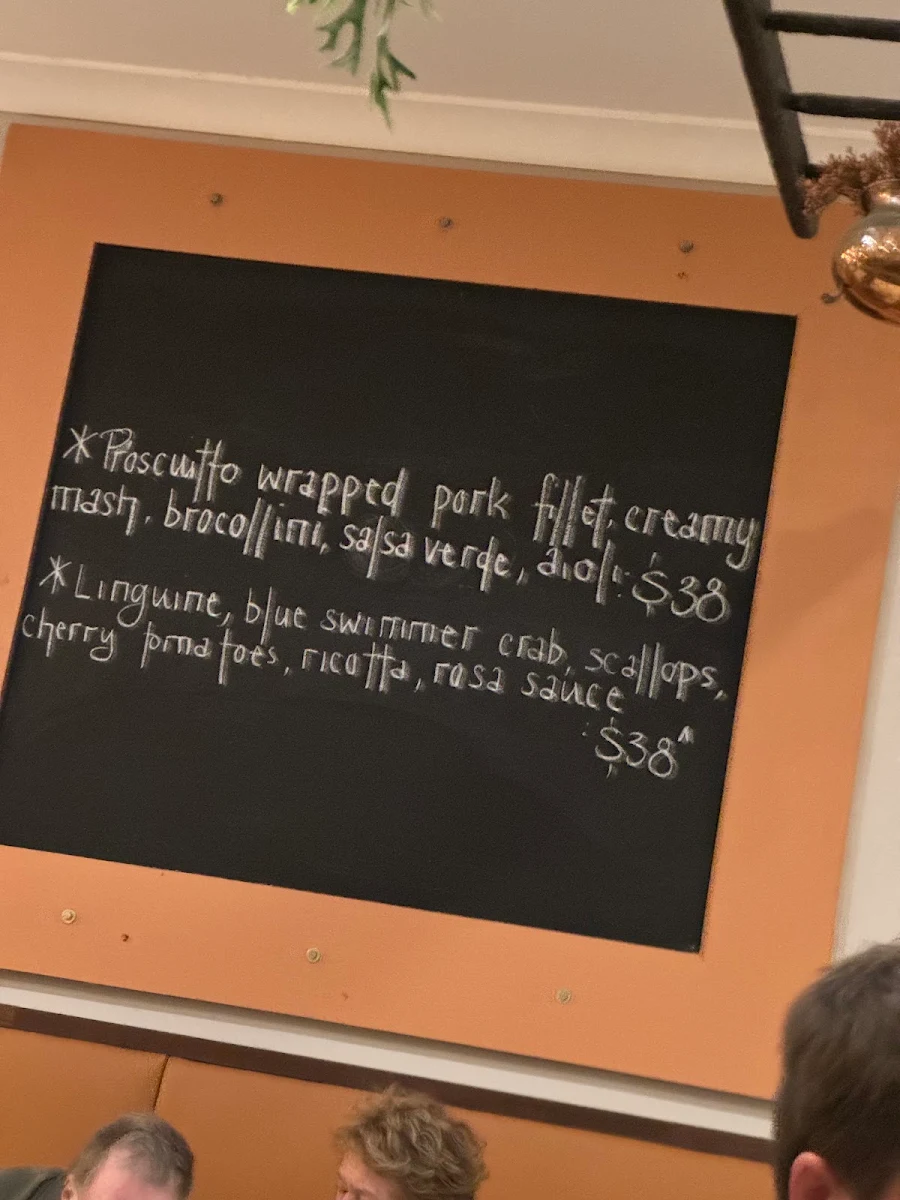 * Proscuitto wrapped pork fillet, creamy
mash, brocollini, salsa verde, aioli. $38
* Linguine, blue swimmer crab, scallops,
cherry tomatoes, ricotta, rosa sauce
$38